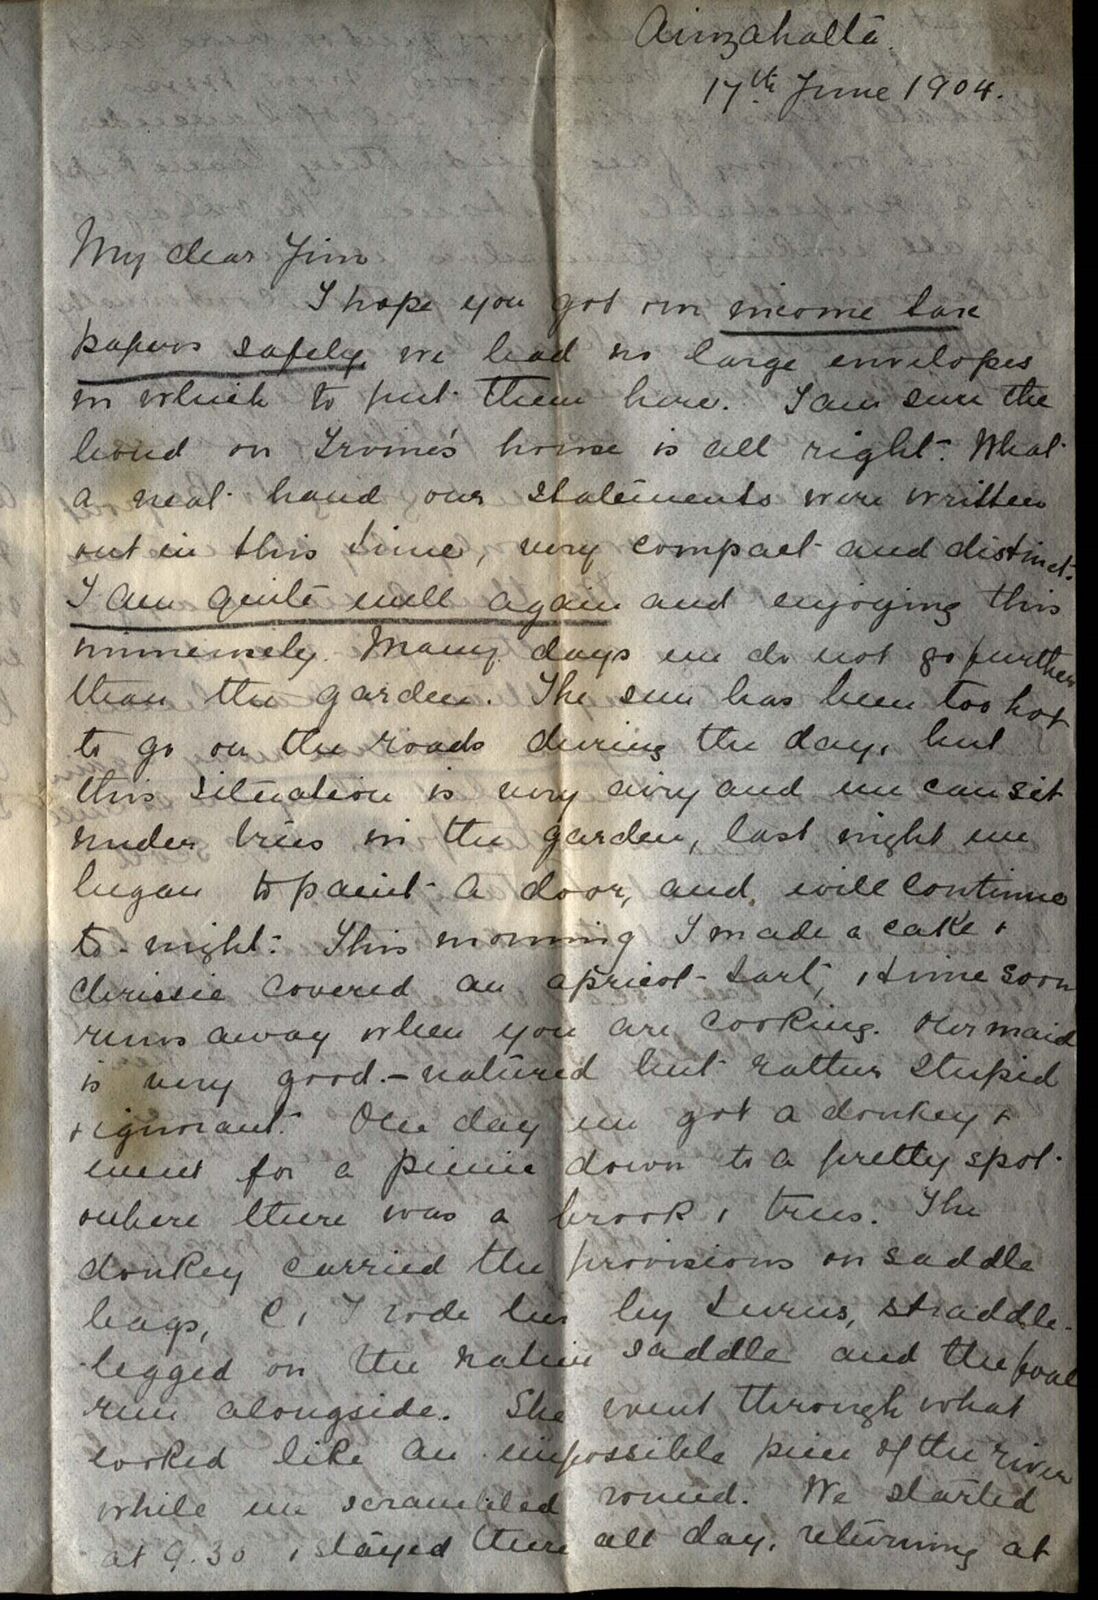 Ainzahalta.
17th June 1904.
My dear Jim
I hope you got our income tax
papers safely we had no large envelopes
in which to put them here. I am sure the
bond on Irvine's house is all right. What
a neat hand our statements were written
out in this time, very compact and distinct.
I am quite well again and enjoying this
immensely. Many days we do not go further
than the garden. The sun has been too hot
to go on the roads during the day, but
this situation is very airy and we can sit
under trees in the garden, last night we
began to paint a door, and will continue
to-night. This morning I made a cake &
Chrissie covered an apricot tart, & time soon
runs away when you are cooking. Our maid
is very good-natured but rather stupid
& ignorant. One day we got a donkey &
went for a picnic down to a pretty spot
where there was a brook & trees. The
donkey carried the provisions on saddle
bags, C & I rode her by turns, straddle-
legged on the native saddle and the foal
run alongside. She went through what
looked like an impossible piece of the river
while we scrambled round. We started
at 9.30 & stayed there all day, returning at